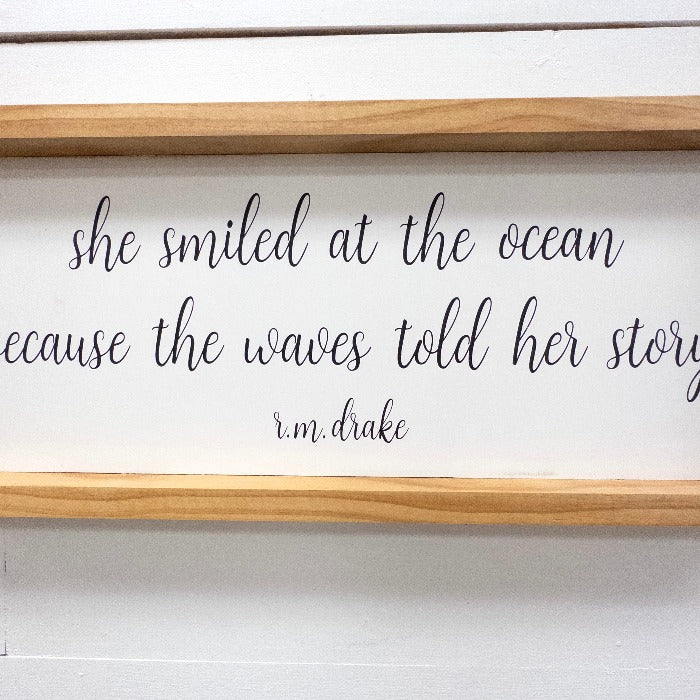 she smiled at the ocean
ecause the waves told her story
r.m. drake